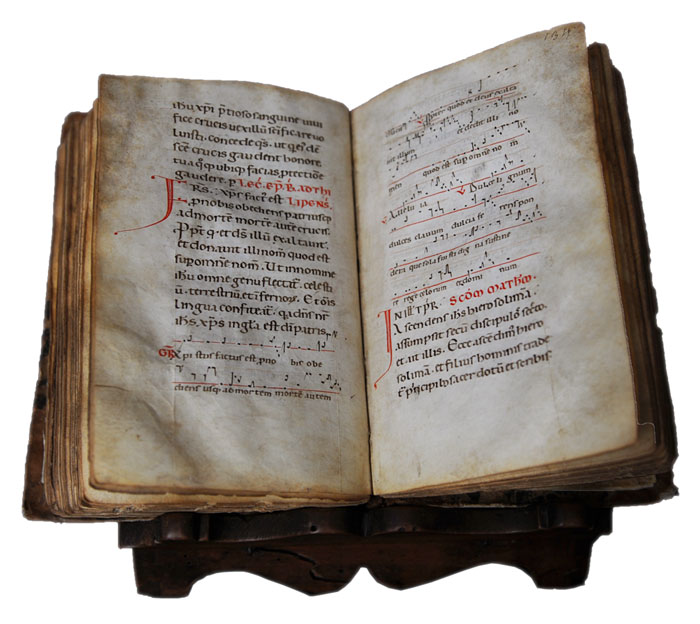 ihu xpi ptioso sanguine uiui
fice crucis uexillu scificare uo
luisti, concede qs, ut qei de
sce crucis gaudent honore
tua qoq ubiq facias ptectione
gaudere. p LEC. EPI. B AD THI
FRS. Xps factus est LIPENS.
p nobis obediens patri usq
ad mortem morte aute crucis.
Ppt q et ds illu exaltauit
et donauit illi nom quod est
sup omne nom. Ut in nomine
ihu omne genu flectat, celesti
u, terrestriu et ifernor. Et ois
lingua confiteat, q dns nr
ihs xps in gla est di patris.
GR Xpistus factus est pno bis obe
diens usq ad mortem morte autem
quod et deus exalta
et dedit illi no
uit illum
men quod est sup omne nom
Alleluia Dulce lignum
dulces clauos dulcia fe rens pon
dera que sola fuisti dig na sustine
re rege celorum et domi num
IN ILL TPR. SCDM MATHM.
Ascendens ihs hierosolima
assumpsit secu discipulos secreto
et ait illis. Ecce ascedim hiero
solima, et filius hominis trade
t principib sacerdotum et scribis.